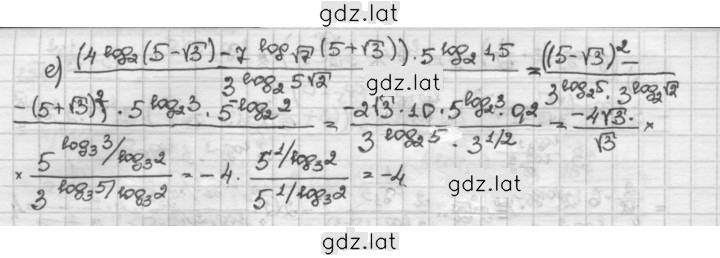 gdz.lat
е) (4^log₂(5-√3) - 7^log√7(5+√3)) · 5^log₂1,5 / 3^log₂5√2 = ((5-√3)² -
gdz.lat
-(5+√3)²) · 5^log₂3 · 5^-log₂2 / 3^log₂5 · 3^log₂√2 = -2√3 · 10 · 5^log₂3 · 0,2 / 3^log₂5 · 3^1/2 = -4√3 · / √3 ×
× 5^log₃3/log₃2 / 3^log₃5/log₃2 = -4 · 5^1/log₃2 / 5^1/log₃2 = -4
gdz.lat
gdz.lat